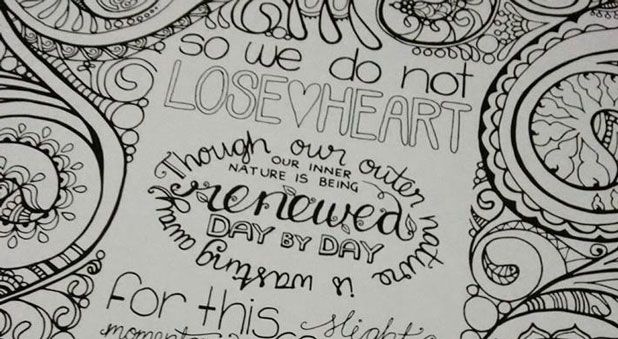 so we do not
LOSE♡HEART
Though our outer nature is wasting away
OUR INNER
NATURE IS BEING
renewed
DAY BY DAY
for this slight